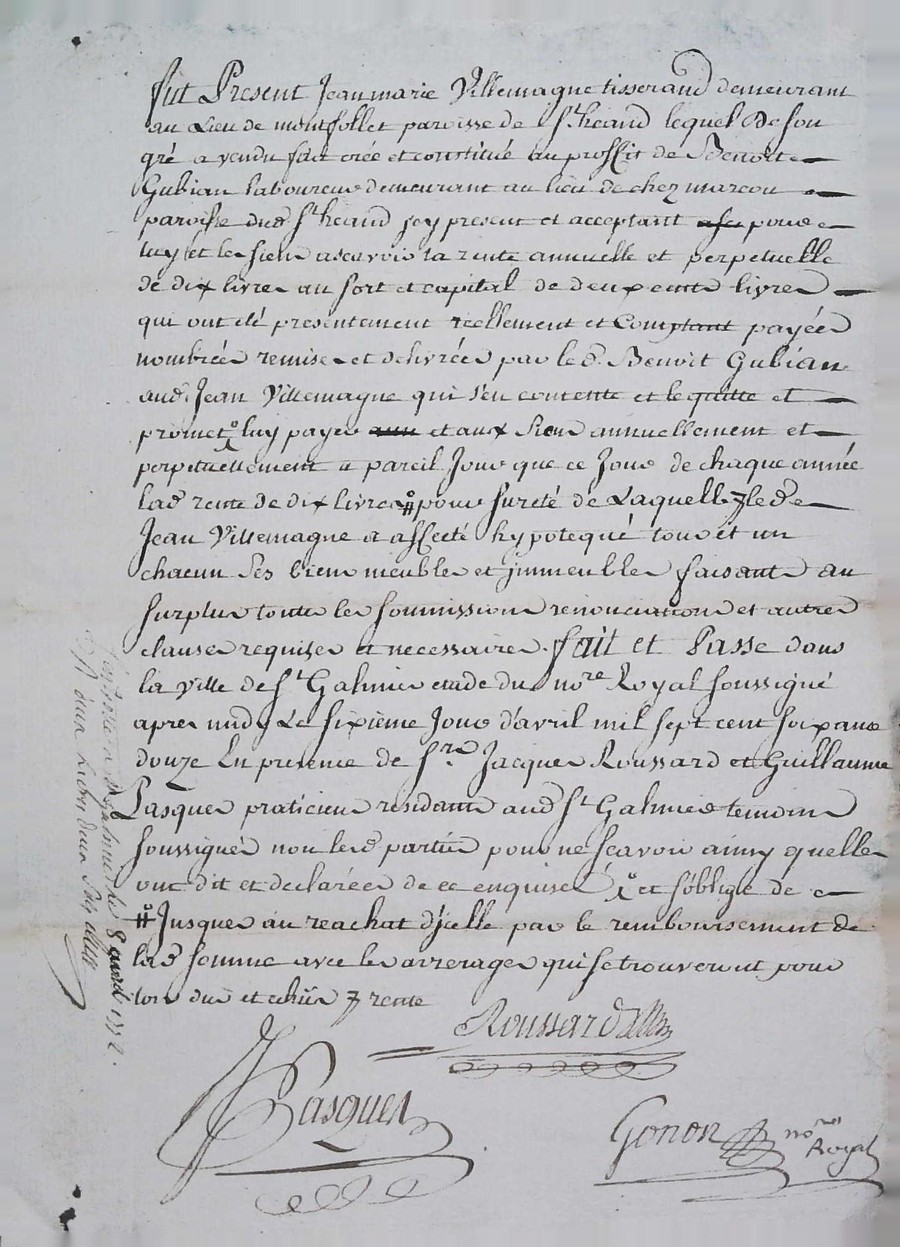 fut Present Jean marie Villemagne tisserand demeurant
au Lieu de montfollet paroisse de St heand lequel De son
gré a vendu fait créé et constitué au proffit de Benoit
Gubian laboureur demeurant au lieu de chez marcou
paroisse dud St heand jcy present et acceptant pour
luy et les siens ascavoir la rente annuelle et perpetuelle
de dix livres au sort et capital de deux cents livres
qui ont été presentement réellement et Comptant payées
nombrées remises et delivrées par led. Benoit Gubian
aud. Jean Villemagne qui s'en contente et le quitte et
promet luy payer et aux siens annuellement et
perpetuellement a pareil Jour que ce Jour de chaque année
lad rente de dix livres # pour sureté de Laquelle 7 led
Jean Villemagne a affecté hypotequé tous et un
chacun Ses biens meubles et jmmeubles faisants au
surplus toutes les soumissions renonciations et autres
clauses requises et necessaires. fait et Passé dans
la ville de St Galmier etude du nore Royal soussigné
apres midy Le sixième Jour d'avril mil sept cent soixante
douze En presence de Sr. Jacques Roussard et Guillaume
Pasquer praticiens residants aud St Galmier temoins
soussignés non led parties pour ne scavoir ainsy quelles
ont dit et declarées de ce enquises et s'oblige de
# Jusques au reachat d'jcelle par le remboursement de
lad somme avec les arrerages qui se trouveront pour
lors dus et echus 7 rente
Roussard
Pasquer
Gonon nore Royal
St Galmier le 8 avril 1772.